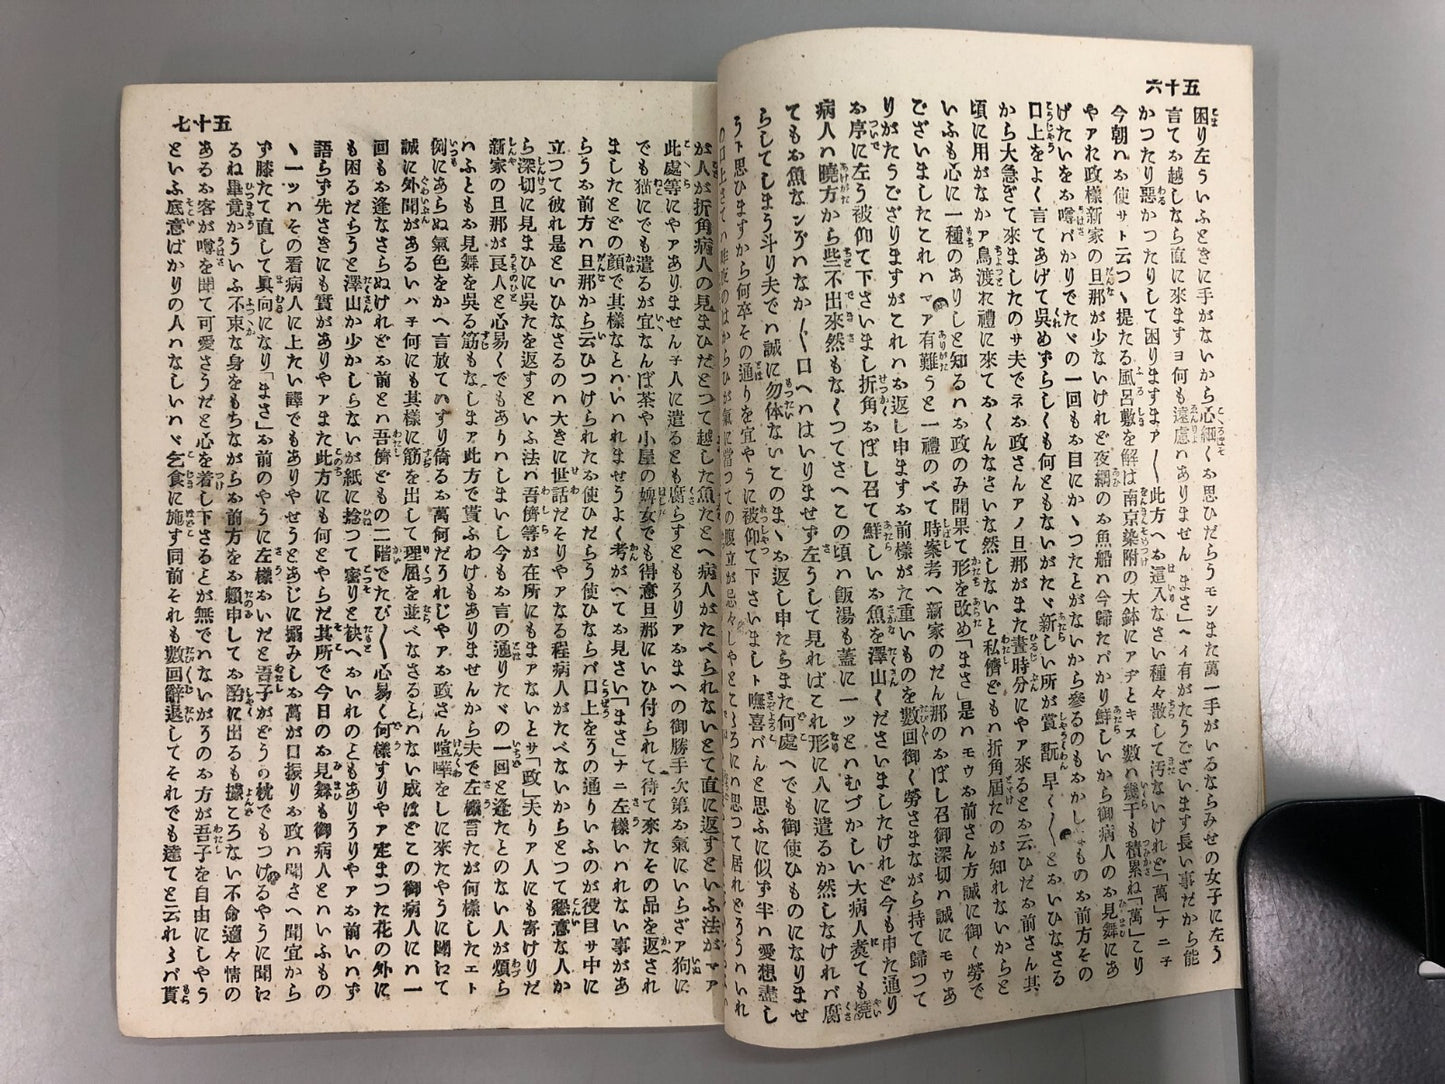 五十六
困り左ういふときに手がないから心細くお思ひだらうモシまた萬一手がいるならみせの女子に左う
言てお越しなら直に來ますヨ何も遠慮ハありません「まさ」ヘイ有がたうございます長い事だから能
かつたり惡かつたりして困りますまアー〳〵此方へお這入なさい種々散して汚ないけれど「萬」ナニ子
今朝ハお使サト云つヽ提たる風呂敷を解は南京染附の大鉢にアヂとキス數ハ幾干も積累ね「萬」こり
やアれ政樣新家の旦那が少ないけれど夜網のお魚船ハ今歸たバかり鮮しいから御病人のお見舞にあ
げたいをお噂バかりでたヾの一回もお目にかヽつたとがないから參るのもおかしなものお前方その
口上をよく言てあげて呉めずらしくも何ともないがたヾ新しい所が賞翫早く〳〵とおいひなさる
から大急ぎて來ましたのサ夫でネお政さんアノ旦那がまた晝時分にやア來るとお云ひだお前さん其
頃に用がなかア鳥渡お禮に來ておくんなさいな然しないと私儕どもハ折角屆たのが知れないからと
いふも心に一種のありしと知るハお政のみ聞果て形を改め「まさ」是ハモウお前さん方誠に御く勞で
ございましたこれハマア有難うと一禮のべて時案考へ新家のだん那のおぼし召御深切ハ誠にモウあ
りがたうござりますがこれハお返し申ますお前樣がた重いものを數回御く勞さまながら持て歸つて
お序に左う被仰て下さいまし折角おぼし召て鮮しいお魚を澤山くださいましたけれど今も申た通り
病人ハ曉方から些不出來然もなくつてさへこの頃ハ飯湯も蓋に一ッとハむづかしい大病人煑ても燒
てもお魚なンゾハなか〳〵口へハはいりませず左うして見ればこれ形に八に遣るか然しなけれバ腐
らしてしまう斗り夫でハ誠に勿体ないこのまヽお返し申たらまた何處へでも御使ひものになりませ
うト思ひますから何卒その通りを宜やうに被仰て下さいましト嘸喜バんと思ふに似ず半ハ愛想盡し
五十七
が人が折角病人の見まひだとつて越した魚たとへ病人がたべられないとて直に返すといふ法がマア
此處等にやアありません子人に遣るとも腐らすともろりアおまへの御勝手次第お氣にいらざア狗に
でも猫にでも遣るが宜なんぼ茶や小屋の婢女でも得意旦那にいひ付られて待て來たその品を返され
ましたとどの顏で其樣なとハいハれませうよく考がへてお見さい「まさ」ナニ左樣いハれない事があ
らうお前方ハ旦那から云ひつけられたお使ひだらう使ひならバ口上をろの通りいふのが役目サ中に
立つて彼れ是といひなさるのハ大きに世話だそりやアなる程病人がたべないからとつて懇意な人か
ら深切に見まひに呉たを返すといふ法ハ吾儕等が在所にもまアないとサ「政」夫りア人にも寄けりだ
新家の旦那が良人と心易くでもありハしまいし今もお言の通りたヾの一回と逢たとのない人が煩ら
ハふともお見舞を呉る筋もなしまア此方で貰ふわけもありませんから夫で左樣言たが何樣したエト
例にあらぬ氣色をかへ言放てハずり倚るお萬何だろれじやアお政さん喧嘩をしに來たやうに聞にて
誠に外聞があるいハヂ何にも其樣に筋を出して理屈を並べなさるとハない成ほどこの御病人にハ一
回もお逢なさらぬけれどお前とハ吾儕どもの二階でたび〳〵心易く何樣すりやア定まつた花の外に
も困るだらうと澤山か少かしらないが紙に捻つて密りと袂へおいれのともありろりやアお前いハず
語らず先さきにも實がありやアまた此方にも何とやらだ其所で今日のお見舞も御病人とハいふもの
ヽ一ッハその看病人に上たい譯でもありやせうとあじに搦みしお萬が口振りお政ハ聞さへ聞宜から
ず膝たて直して眞向になり「まさ」お前のやうに左樣おいだと吾子がどうの枕でもつけるやうに聞に
るね畢竟かういふ不束な身をもちながらお前方をお賴申してお酌に出るも據ころない不命適々情の
あるお客が噂を聞て可愛さうだと心を着し下さるとが無でハないがろのお方が吾子を自由にしやう
といふ底意ばかりの人ハなしいハヾ乞食に施す同前それも數回辭退してそれでも達てと云れるバ貰